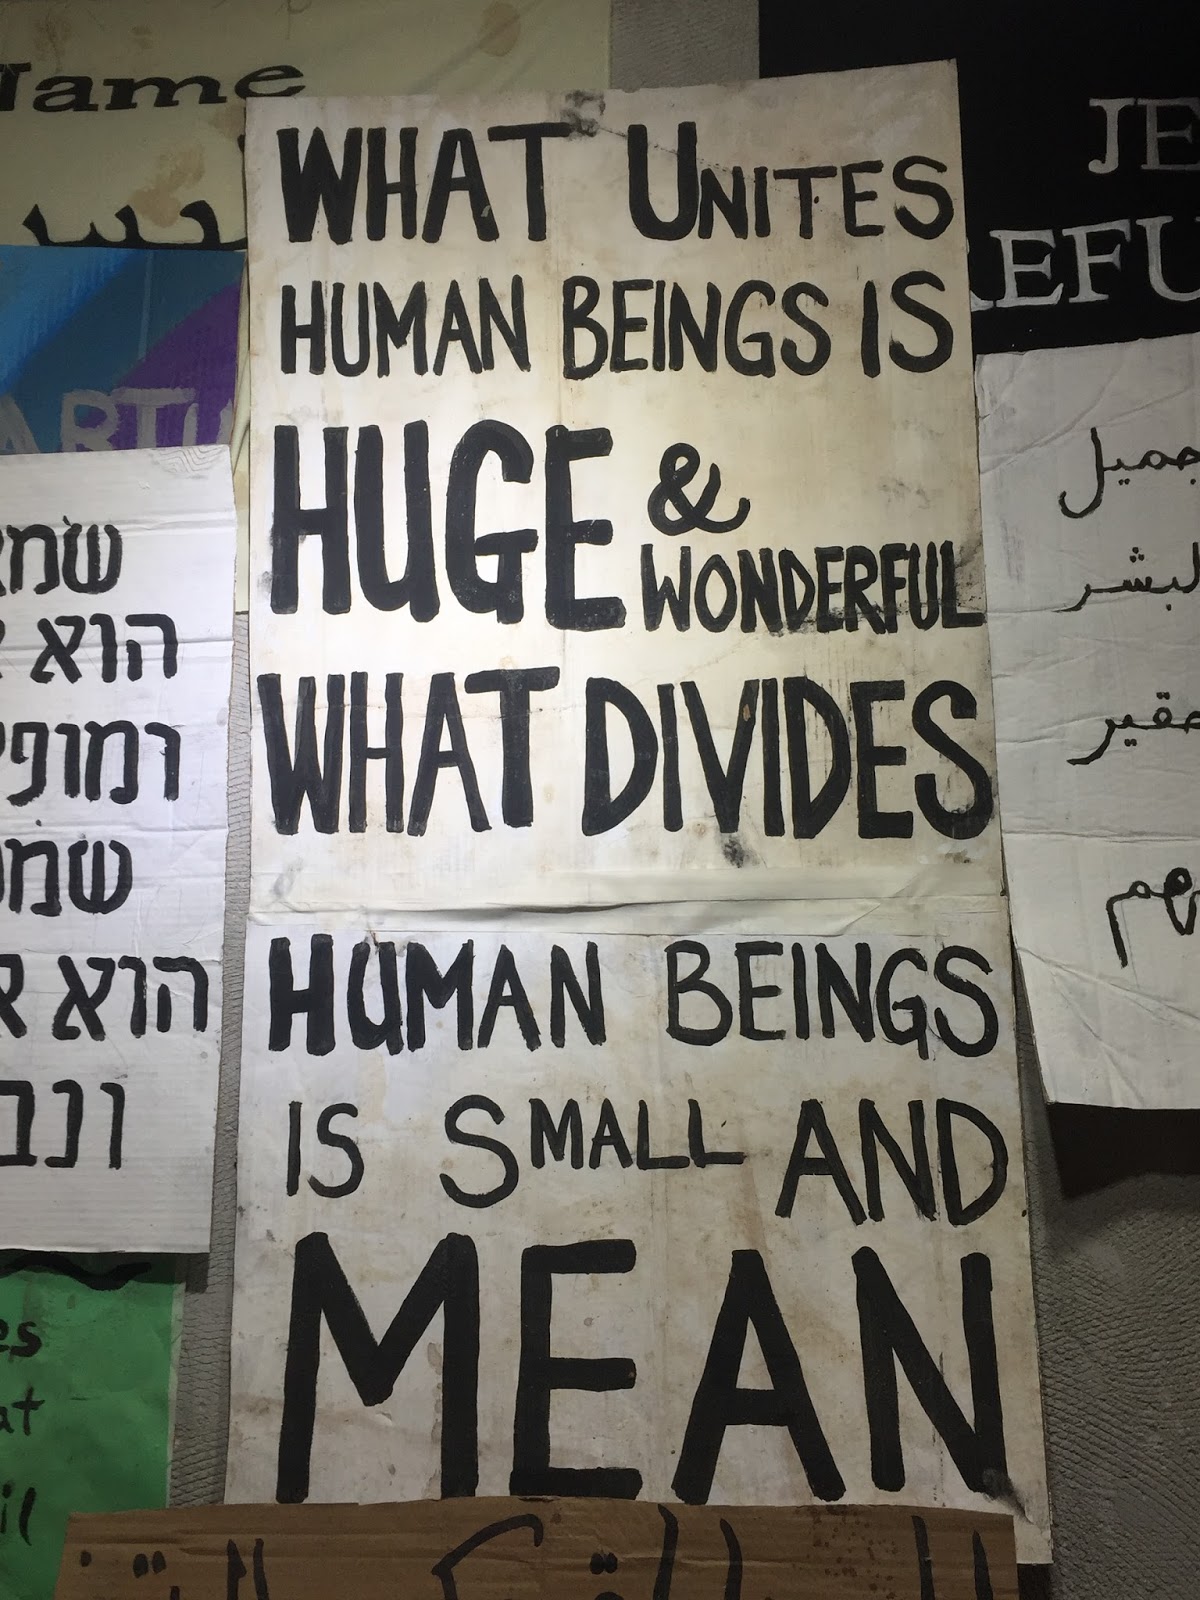 Name
JE
REFU
WHAT UNITES
HUMAN BEINGS IS
HUGE &
WONDERFUL
WHAT DIVIDES
HUMAN BEINGS
IS SMALL AND
MEAN
ARTU
שמא
הוא
ומופי
שמ
הוא א
ונב
جميل
البشر
حقير
هم
es
at
il